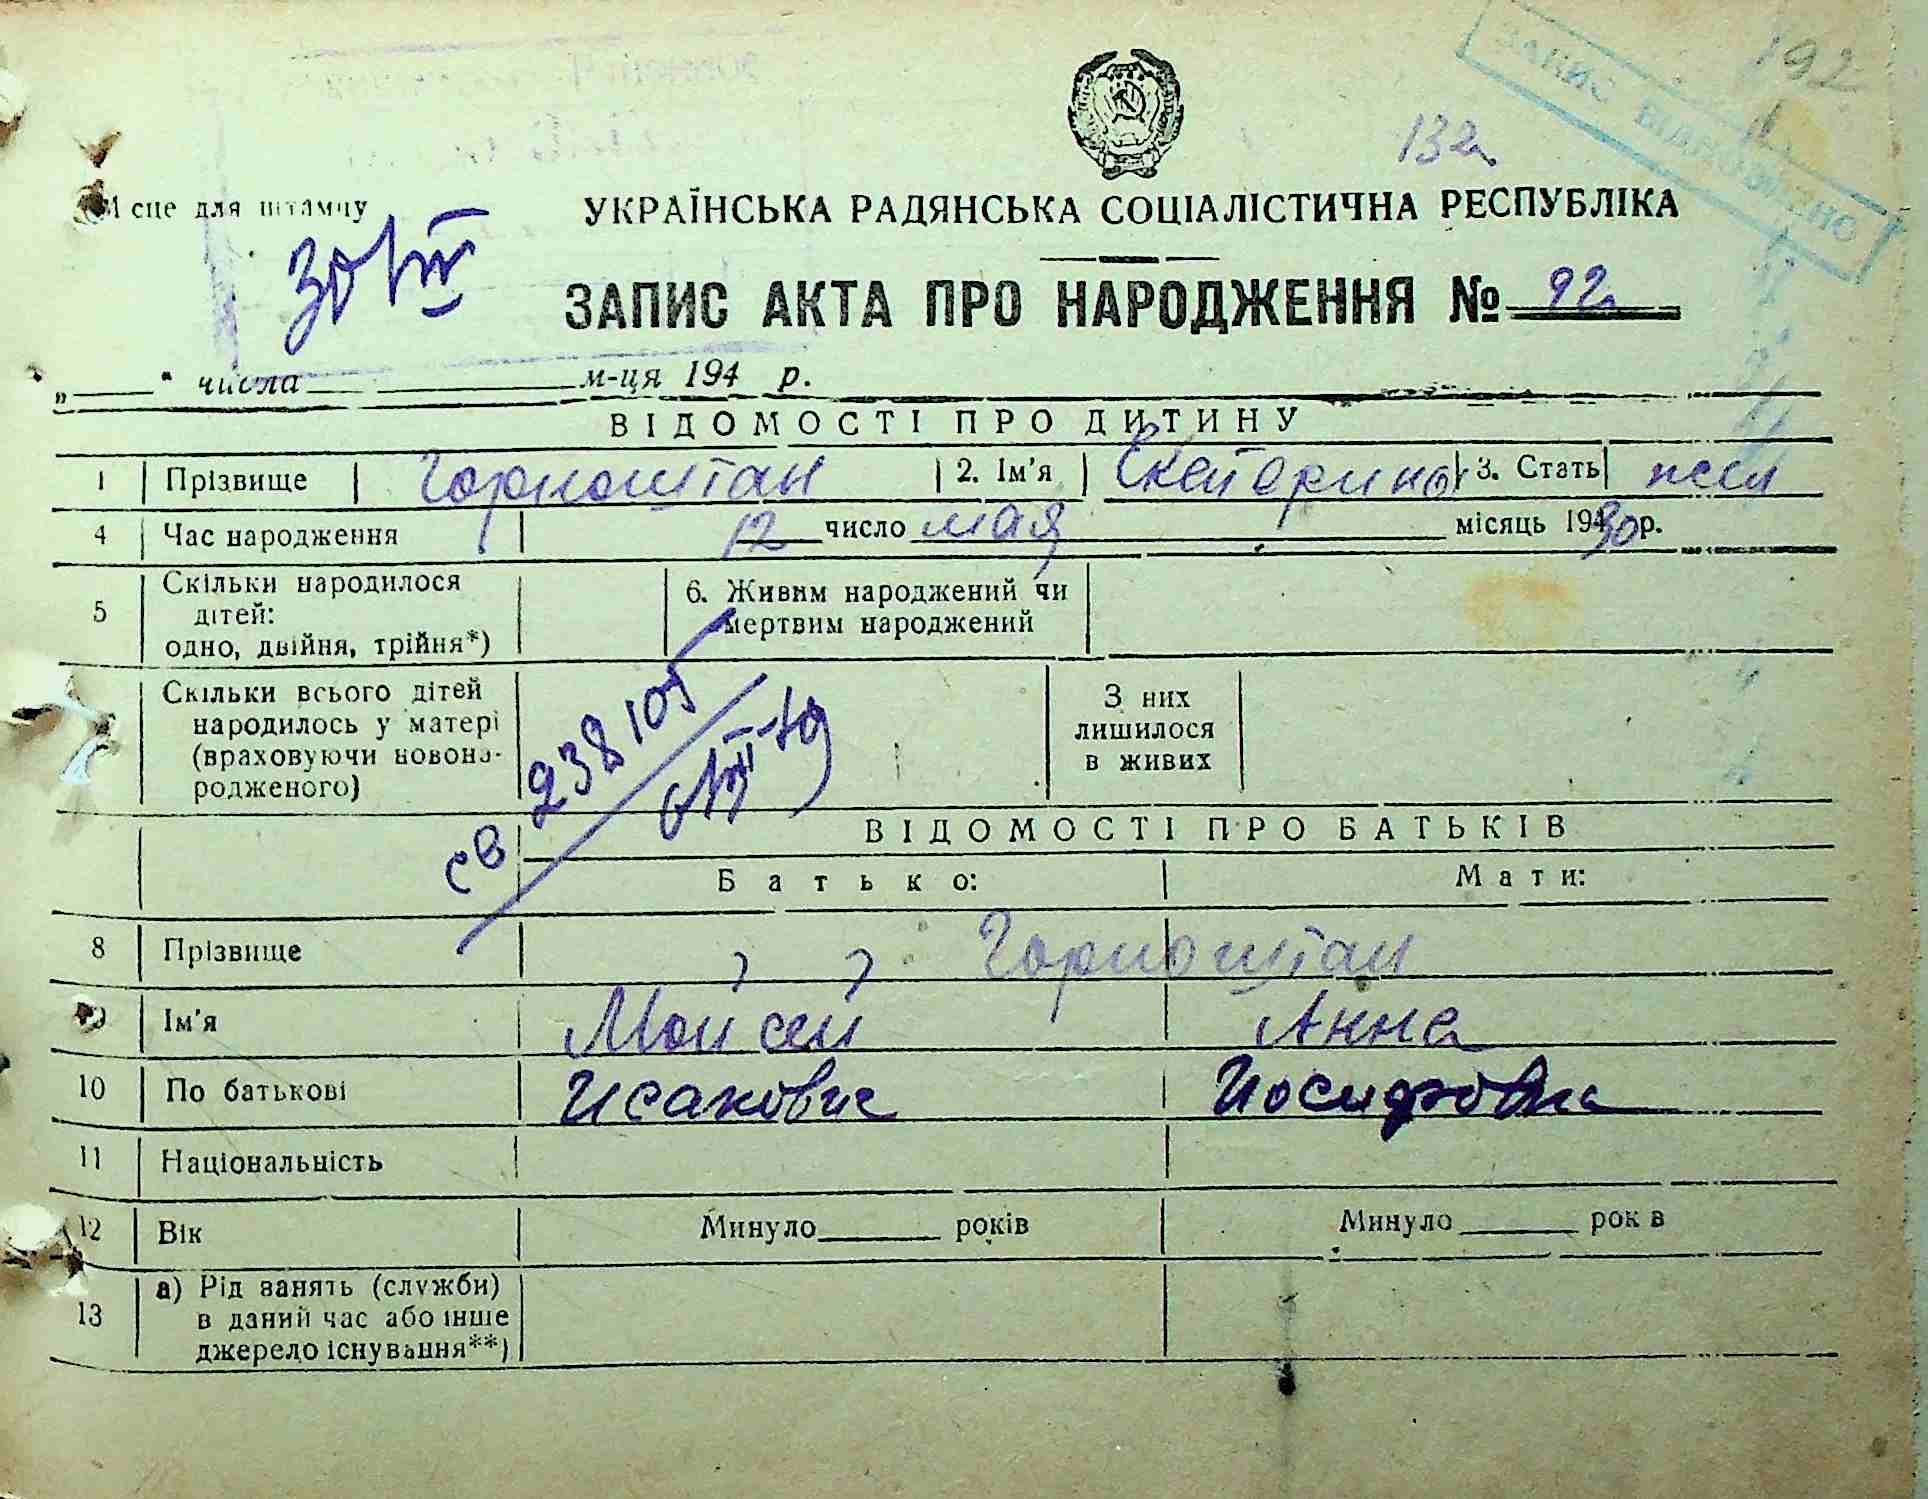 192
ЗАПИС ВІДНОВЛЕНО
132
Місце для штампу
УКРАЇНСЬКА РАДЯНСЬКА СОЦІАЛІСТИЧНА РЕСПУБЛІКА
30/III
ЗАПИС АКТА ПРО НАРОДЖЕННЯ № 92
„ “ числа м-ця 194 р.
ВІДОМОСТІ ПРО ДИТИНУ
1 Прізвище Горноштан 2. Ім'я Екатерина 3. Стать жен
4 Час народження 12 число мая місяць 1930 р.
5 Скільки народилося дітей: одно, двійня, трійня*) 6. Живим народжений чи мертвим народжений
Скільки всього дітей народилось у матері (враховуючи новонародженого) З них лишилося в живих
св 238105
ВІДОМОСТІ ПРО БАТЬКІВ
Батько: Мати:
8 Прізвище Горноштан
9 Ім'я Мойсей Анна
10 По батькові Исакович Иосифовна
11 Національність
12 Вік Минуло років Минуло рок в
13 а) Рід занять (служби) в даний час або інше джерело існування**)